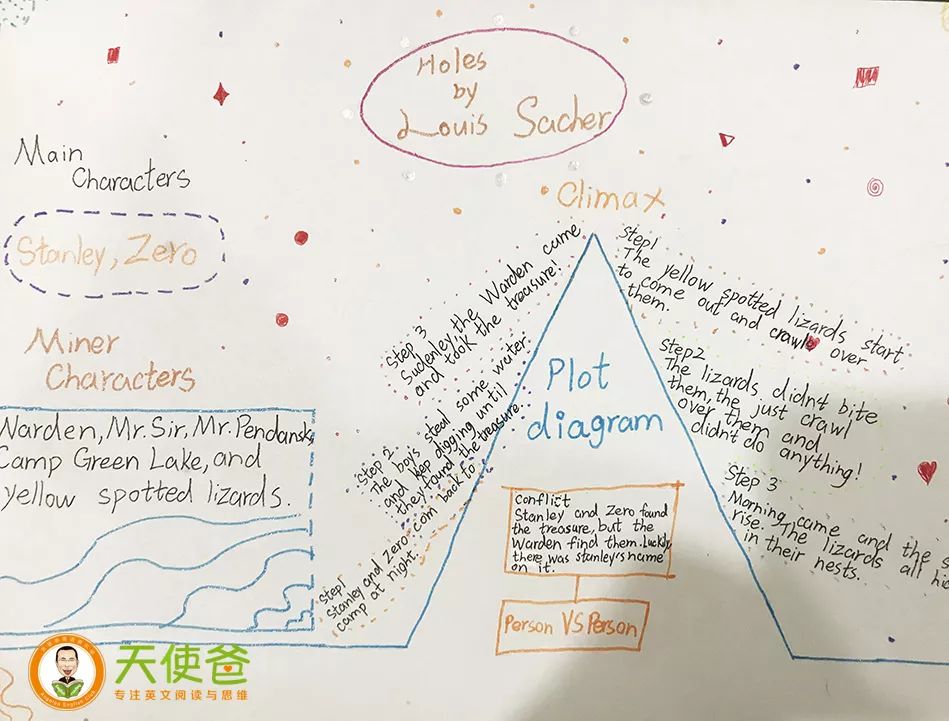 Holes
by
Louis Sacher
Main
Characters
Stanley, Zero
Miner
Characters
Warden, Mr. Sir, Mr. Pendansk,
Camp Green Lake, and
yellow spotted lizards.
Climax
Step 3
Suddenley, the Warden came
and took the treasure!
Step 2
The boys steal some water
and keep digging until
they found the treasure.
Step1
Stanley and Zero com back to
camp at night.
Plot
diagram
Conflict
Stanley and Zero found
the treasure, but the
Warden find them. Luckly
there was stanley's name
on it.
Person VS Person
Step1
The yellow spotted lizards start
to come out and crawle over
them.
Step2
The lizards didn't bite
them, the just crawl
over them and
didn't do anything!
Step 3
Morning came and the
rise. The lizards all
in their nests.
天使爸
专注英文阅读与思维